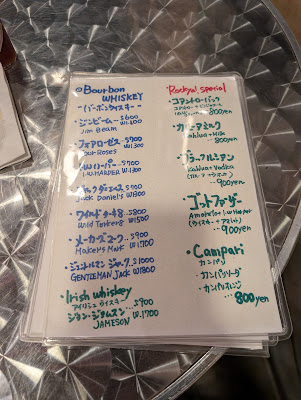 Bourbon
WHISKEY
-バーボンウイスキー-
・ジンビーム…S600
Jim Beam
・フォアローゼス S700
Four Roses
I.W.HARPER W1300
・ジャックダニエル S900
Jack Daniel's W1800
・ワイルドターキー8 S800
Wild Turkey8 W1500
・メーカーズマーク…S900
Maker's Mark W1700
・ジェントルマンジャック S1000
GENTLEMAN JACK W1800
・Irish whiskey
アイリッシュウイスキー
・ジェムスン S900
JAMESON W1700
Rocky's special
800yen
・カルーアミルク
Kahlua+Milk
800yen
・ブラックルシアン
Kahlua+Vodka
900yen
・ゴットファザー
Amaretto+whisky
900yen
・Campari
カンパリ
・カンパリソーダ
・カンパリオレンジ
…800yen